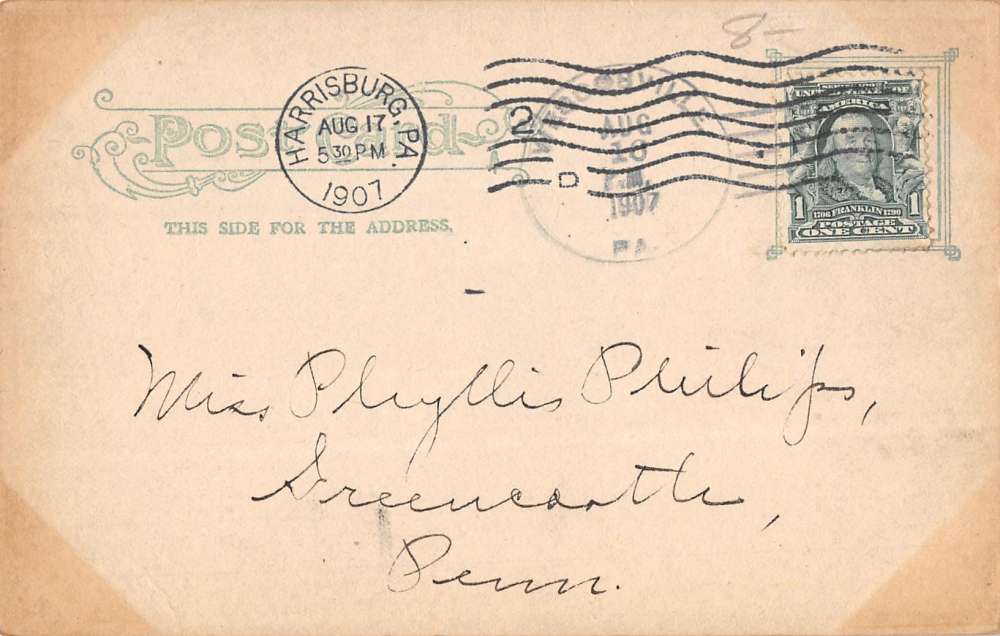 8-
Post Card
THIS SIDE FOR THE ADDRESS.
HARRISBURG, PA.
AUG 17
5 30 PM
1907
2
D
AUG
1907
PA.
UNITED STATES OF
AMERICA
1 1706 FRANKLIN 1790 1
POSTAGE
ONE CENT
Miss Phyllis Philips,
Greencastle,
Penn.